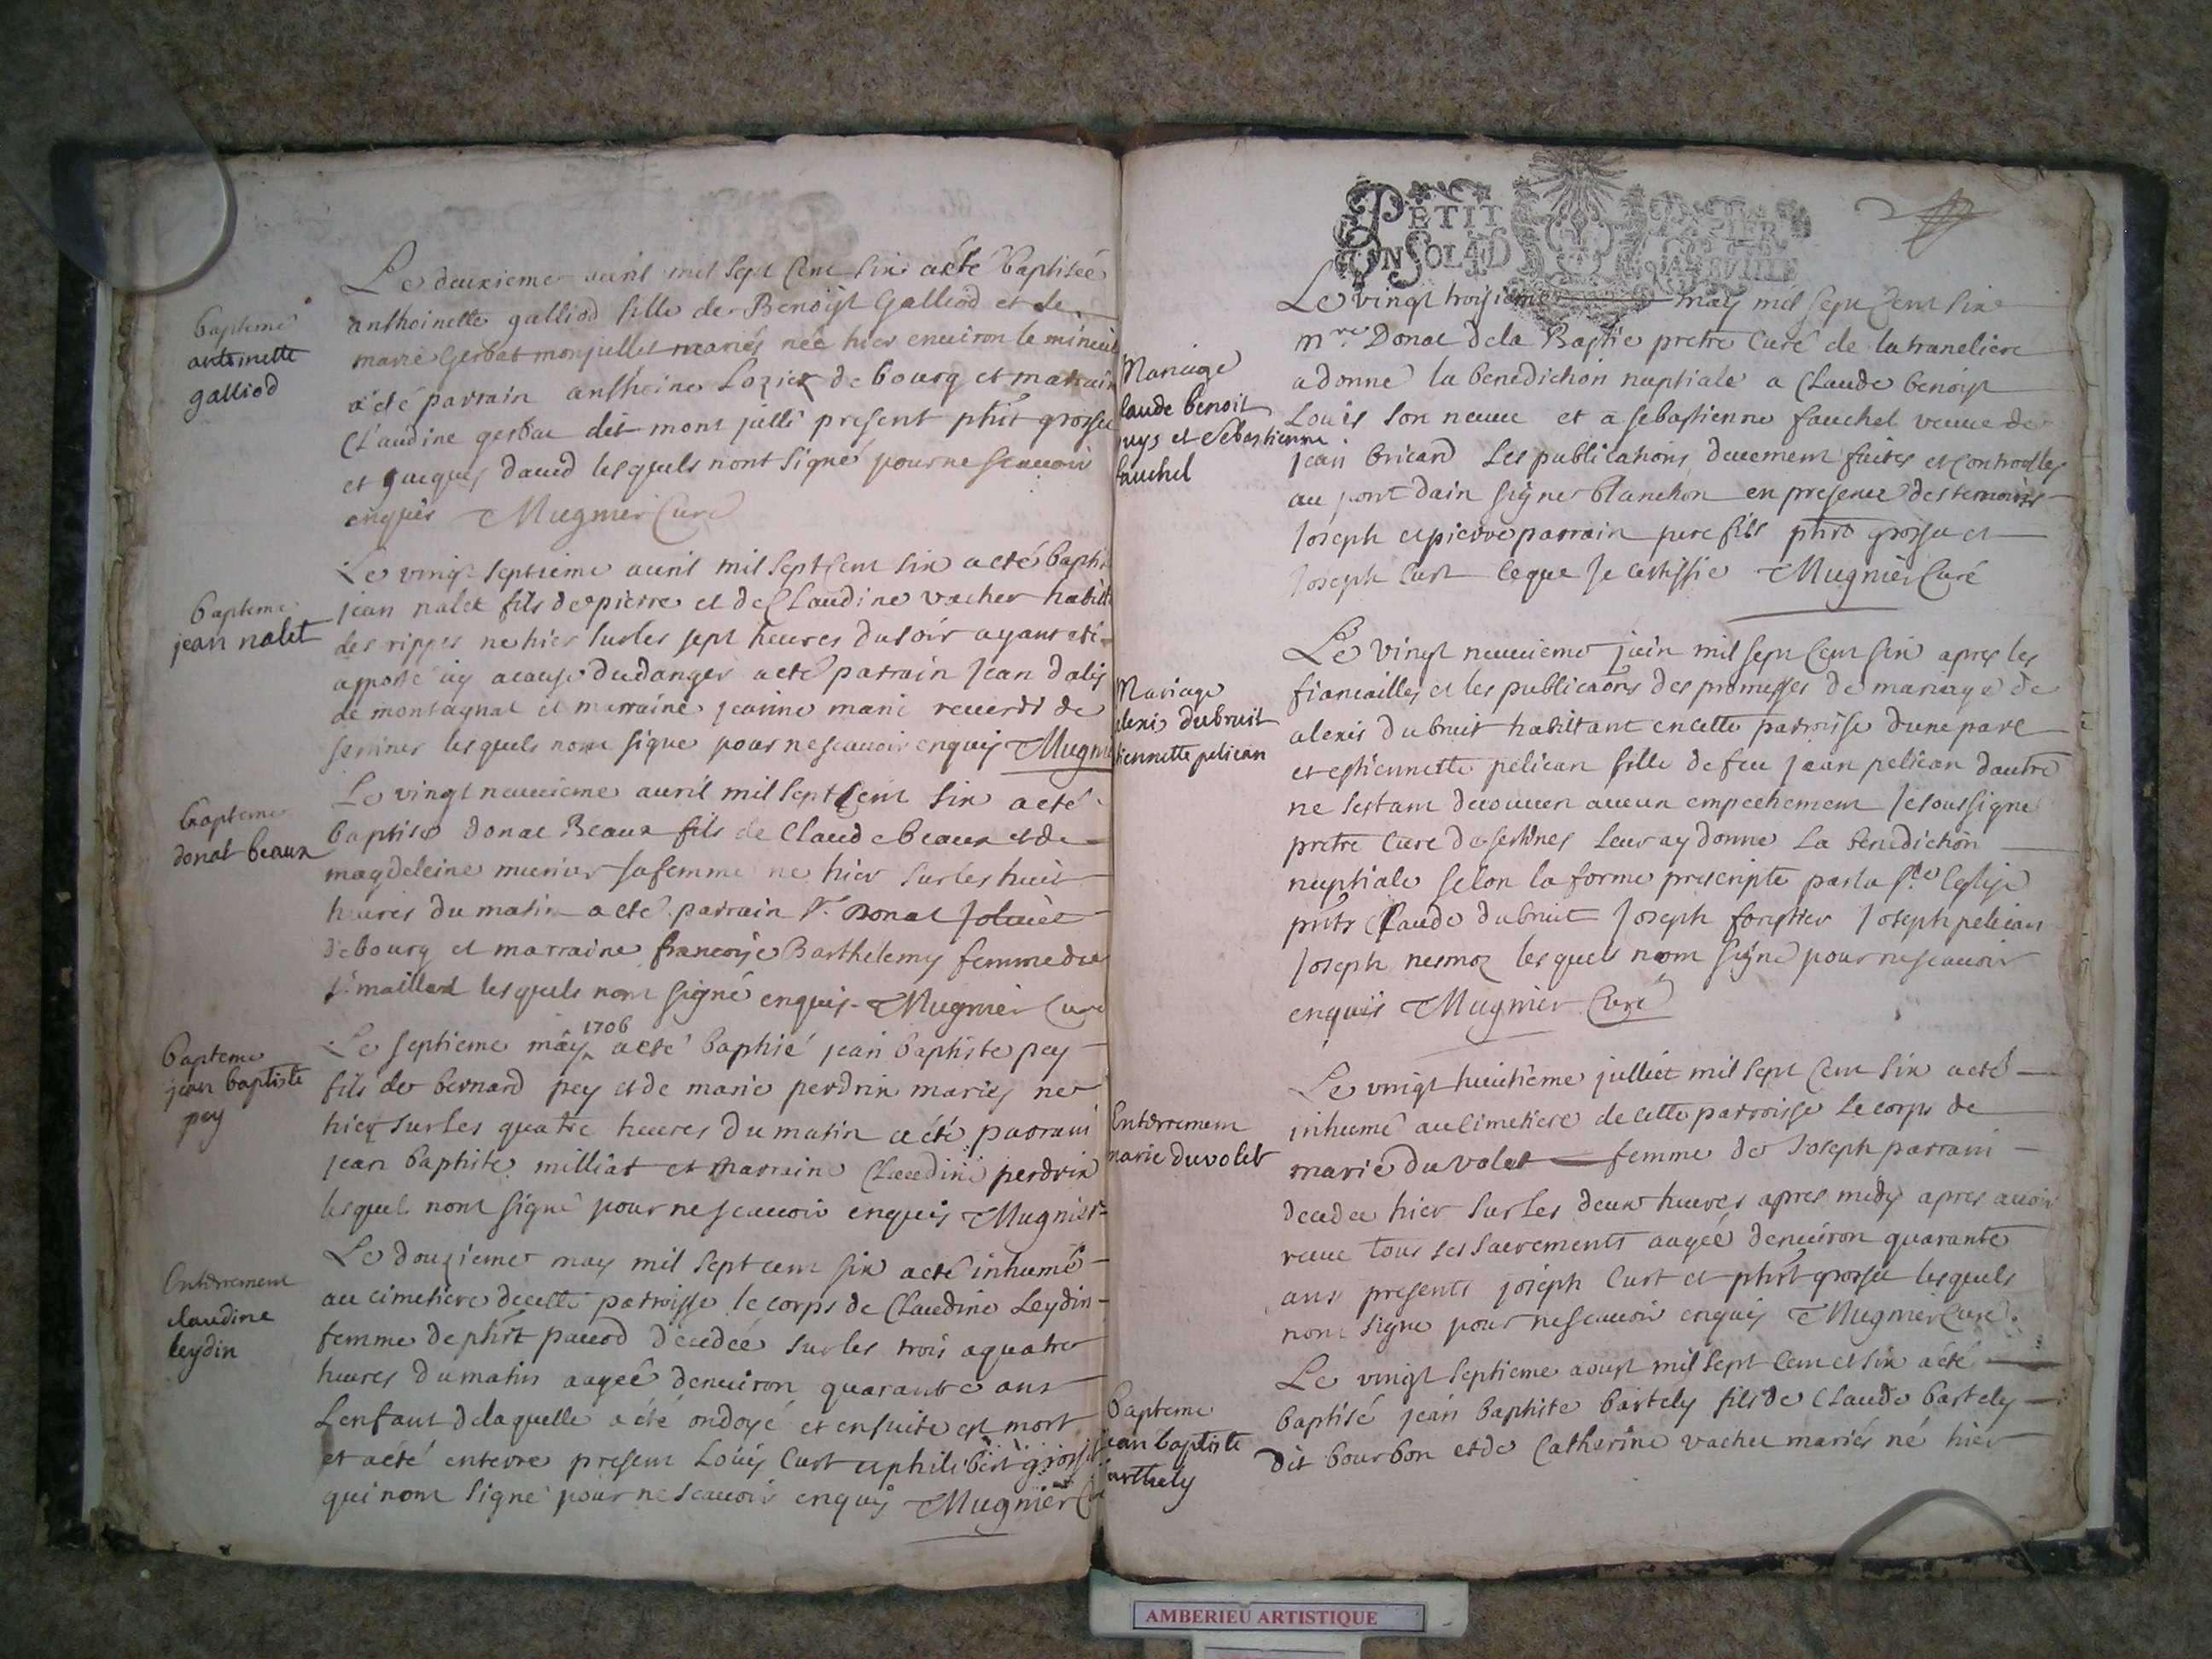 bapteme
antoinette
galliod
Le deuxieme auril mil sept cent six a eté baptiseé
anthoinette galliod fille de Benoist Galliod et de
marie Gerbat monjullet mariés neé hier enuiron le minuit
a eté parrain anthoine Lozier de bourg et marrain
Claudine gerbat dit mont julli present phlt grosset
et jacques dauid lesquels nont signé pour ne scauoir
enquis Mugnier Curé
bapteme
jean nalet
Le vingt septieme auril mil sept cent six a eté bapti
jean nalet fils de pierre et de Claudine vacher habitt
des rippes ne hier sur les sept heures du soir ayant eté
apporté icy a cause du danger a eté parrain jean dalis
de montagnat et marraine jeanne marie reuerdi de
serrines lesquels nont signe pour ne scauoir enquis Mugni
bapteme
donat beaux
Le vingt neuuieme auril mil sept cent six a eté
baptise donat Beaux fils de Claude beaux et de
magdeleine munier sa femme ne hier sur les huit
heures du matin a eté parrain Sr. Donat Joluet
de bourg et marraine francoise Barthelemy femme du
Sr maillard lesquels nont signé enquis Mugnier Curé
bapteme
jean baptiste
pey
1706
Le septieme may a eté baptisé jean baptiste pey
fils de bernard pey et de marie perdrix mariés ne
hier sur les quatre heures du matin a été parrain
jean baptiste milliat et marraine Claudine perdrix
lesquels nont signé pour ne scauoir enquis Mugnier
Enterrement
claudine
leydin
Le douzieme may mil sept cent six a eté inhumé
au cimetiere de cette parroisse le corps de Claudine Leydin
femme de phlrt pauod decedeé sur les trois a quatre
heures du matin aageé denuiron quarante ans
Lenfant de laquelle a été ondoyé et ensuite est mort
et a eté enterre present Loüis Curt et philibert grosset
qui nont signé pour ne scauoir enquis Mugnier Cu
PETIT PAPIER
UN SOL 4 D LA FEUILLE
Mariage
laude benoit
uys et Sebastienne
fauchel
Le vingt troisieme may mil sept cent six
mre. Donat dela Bastie pretre Curé de la traneliere
a donné la benediction nuptiale a Claude benoist
Louis son neueu et a sebastienne fauchel veuue de
jean bricard Les publications deuement faites et controlleés
au pont dain signé blanchon en presence des temoins
Joseph et pierre parrain pere fils phrt grosset et
Joseph Curt ce que Je certiffie Mugnier Curé
Mariage
alexis dubruit
tiennette pelican
Le vingt neuuieme juin mil sept cent six apres les
fiancailles et les publicaons des promesses de mariage de
alexis dubruit habittant en cette parroisse dune part
et estiennette pelican fille de feu jean pelican dautre
ne sestant decouuert aucun empechement Je soussigné
pretre Curé de serrines Leur ay donné La benediction
nuptiale selon la forme prescripte par la Ste Eglise
pnts Claude dubruit Joseph forestier Joseph pelican
Joseph nesmoz lesquels nont signé pour ne scauoir
enquis Mugnier Curé
Enterrement
marie duvolet
Le vingt huitieme julliet mil sept cent six a eté
inhumé au cimetiere de cette parroisse le corps de
marie du volet femme de Joseph parrain
decedeé hier sur les deux heures apres midy apres auoir
receu tous ses sacrements aageé denuiron quarante
ans presents joseph Curt et phlrt grosset lesquels
nont signe pour ne scauoir enquis Mugnier Curé.
Bapteme
ean baptiste
arthely
Le vingt septieme aoust mil sept cent et six a eté
baptisé jean baptiste bartely fils de Claude bartely
dit bourbon et de Catherine vacher mariés né hier
AMBERIEU ARTISTIQUE